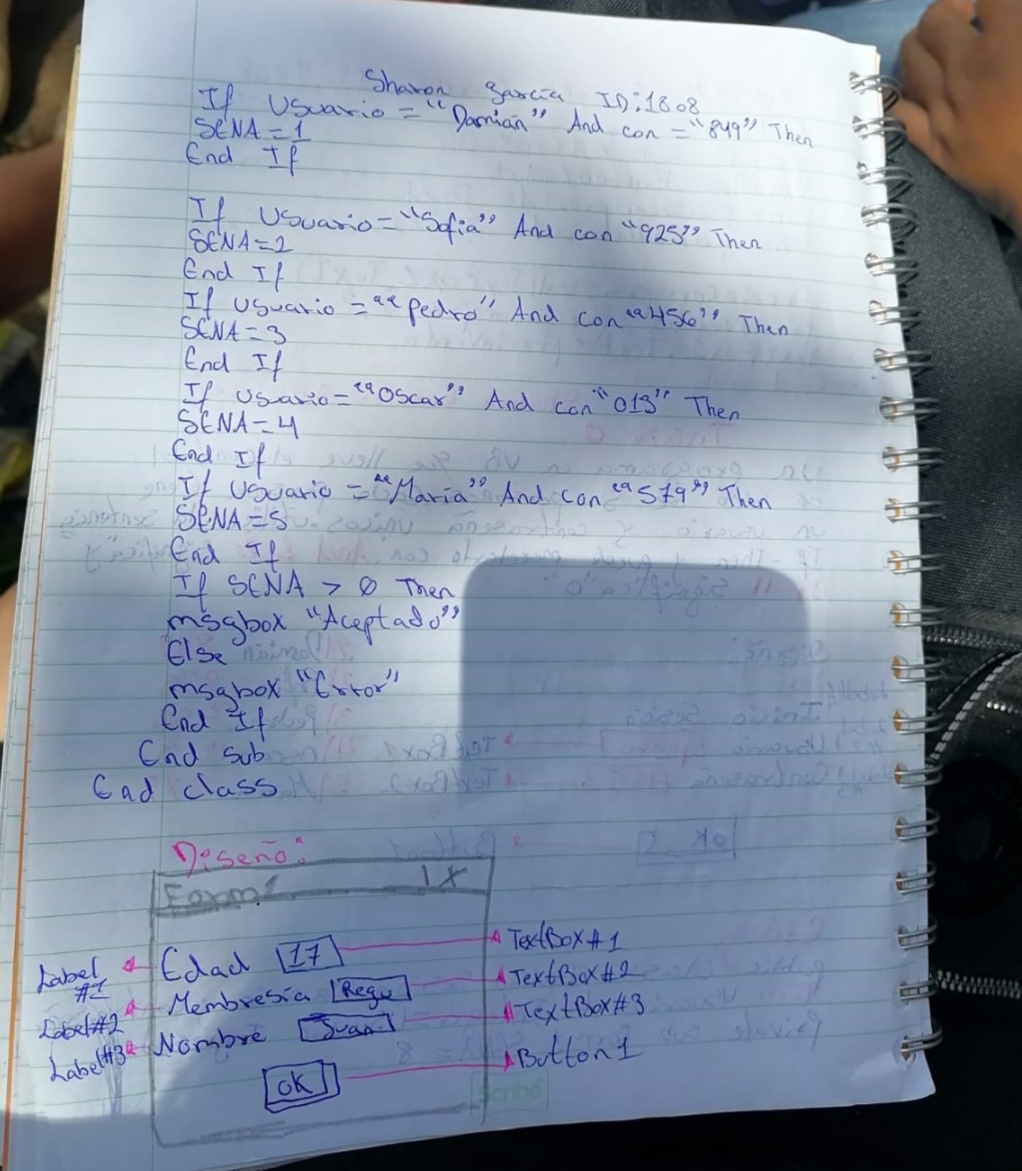 Sharon García ID:1808
If Usuario = "Damian" And con = "849" Then
SENA = 1
End If
If Usuario = "Sofia" And con "925" Then
SENA = 2
End If
If Usuario = "Pedro" And con "456" Then
SENA = 3
End If
If Usuario = "Oscar" And con "013" Then
SENA = 4
End If
If Usuario = "Maria" And con "579" Then
SENA = 5
End If
If SENA > 0 Then
msgbox "Aceptado"
Else
msgbox "Error"
End If
End sub
End class
Diseño:
Form1 X
Label #1 Edad 17 TextBox #1
Label #2 Membresia Regu TextBox #2
Label #3 Nombre Juan TextBox #3
ok Button 1
Scribe